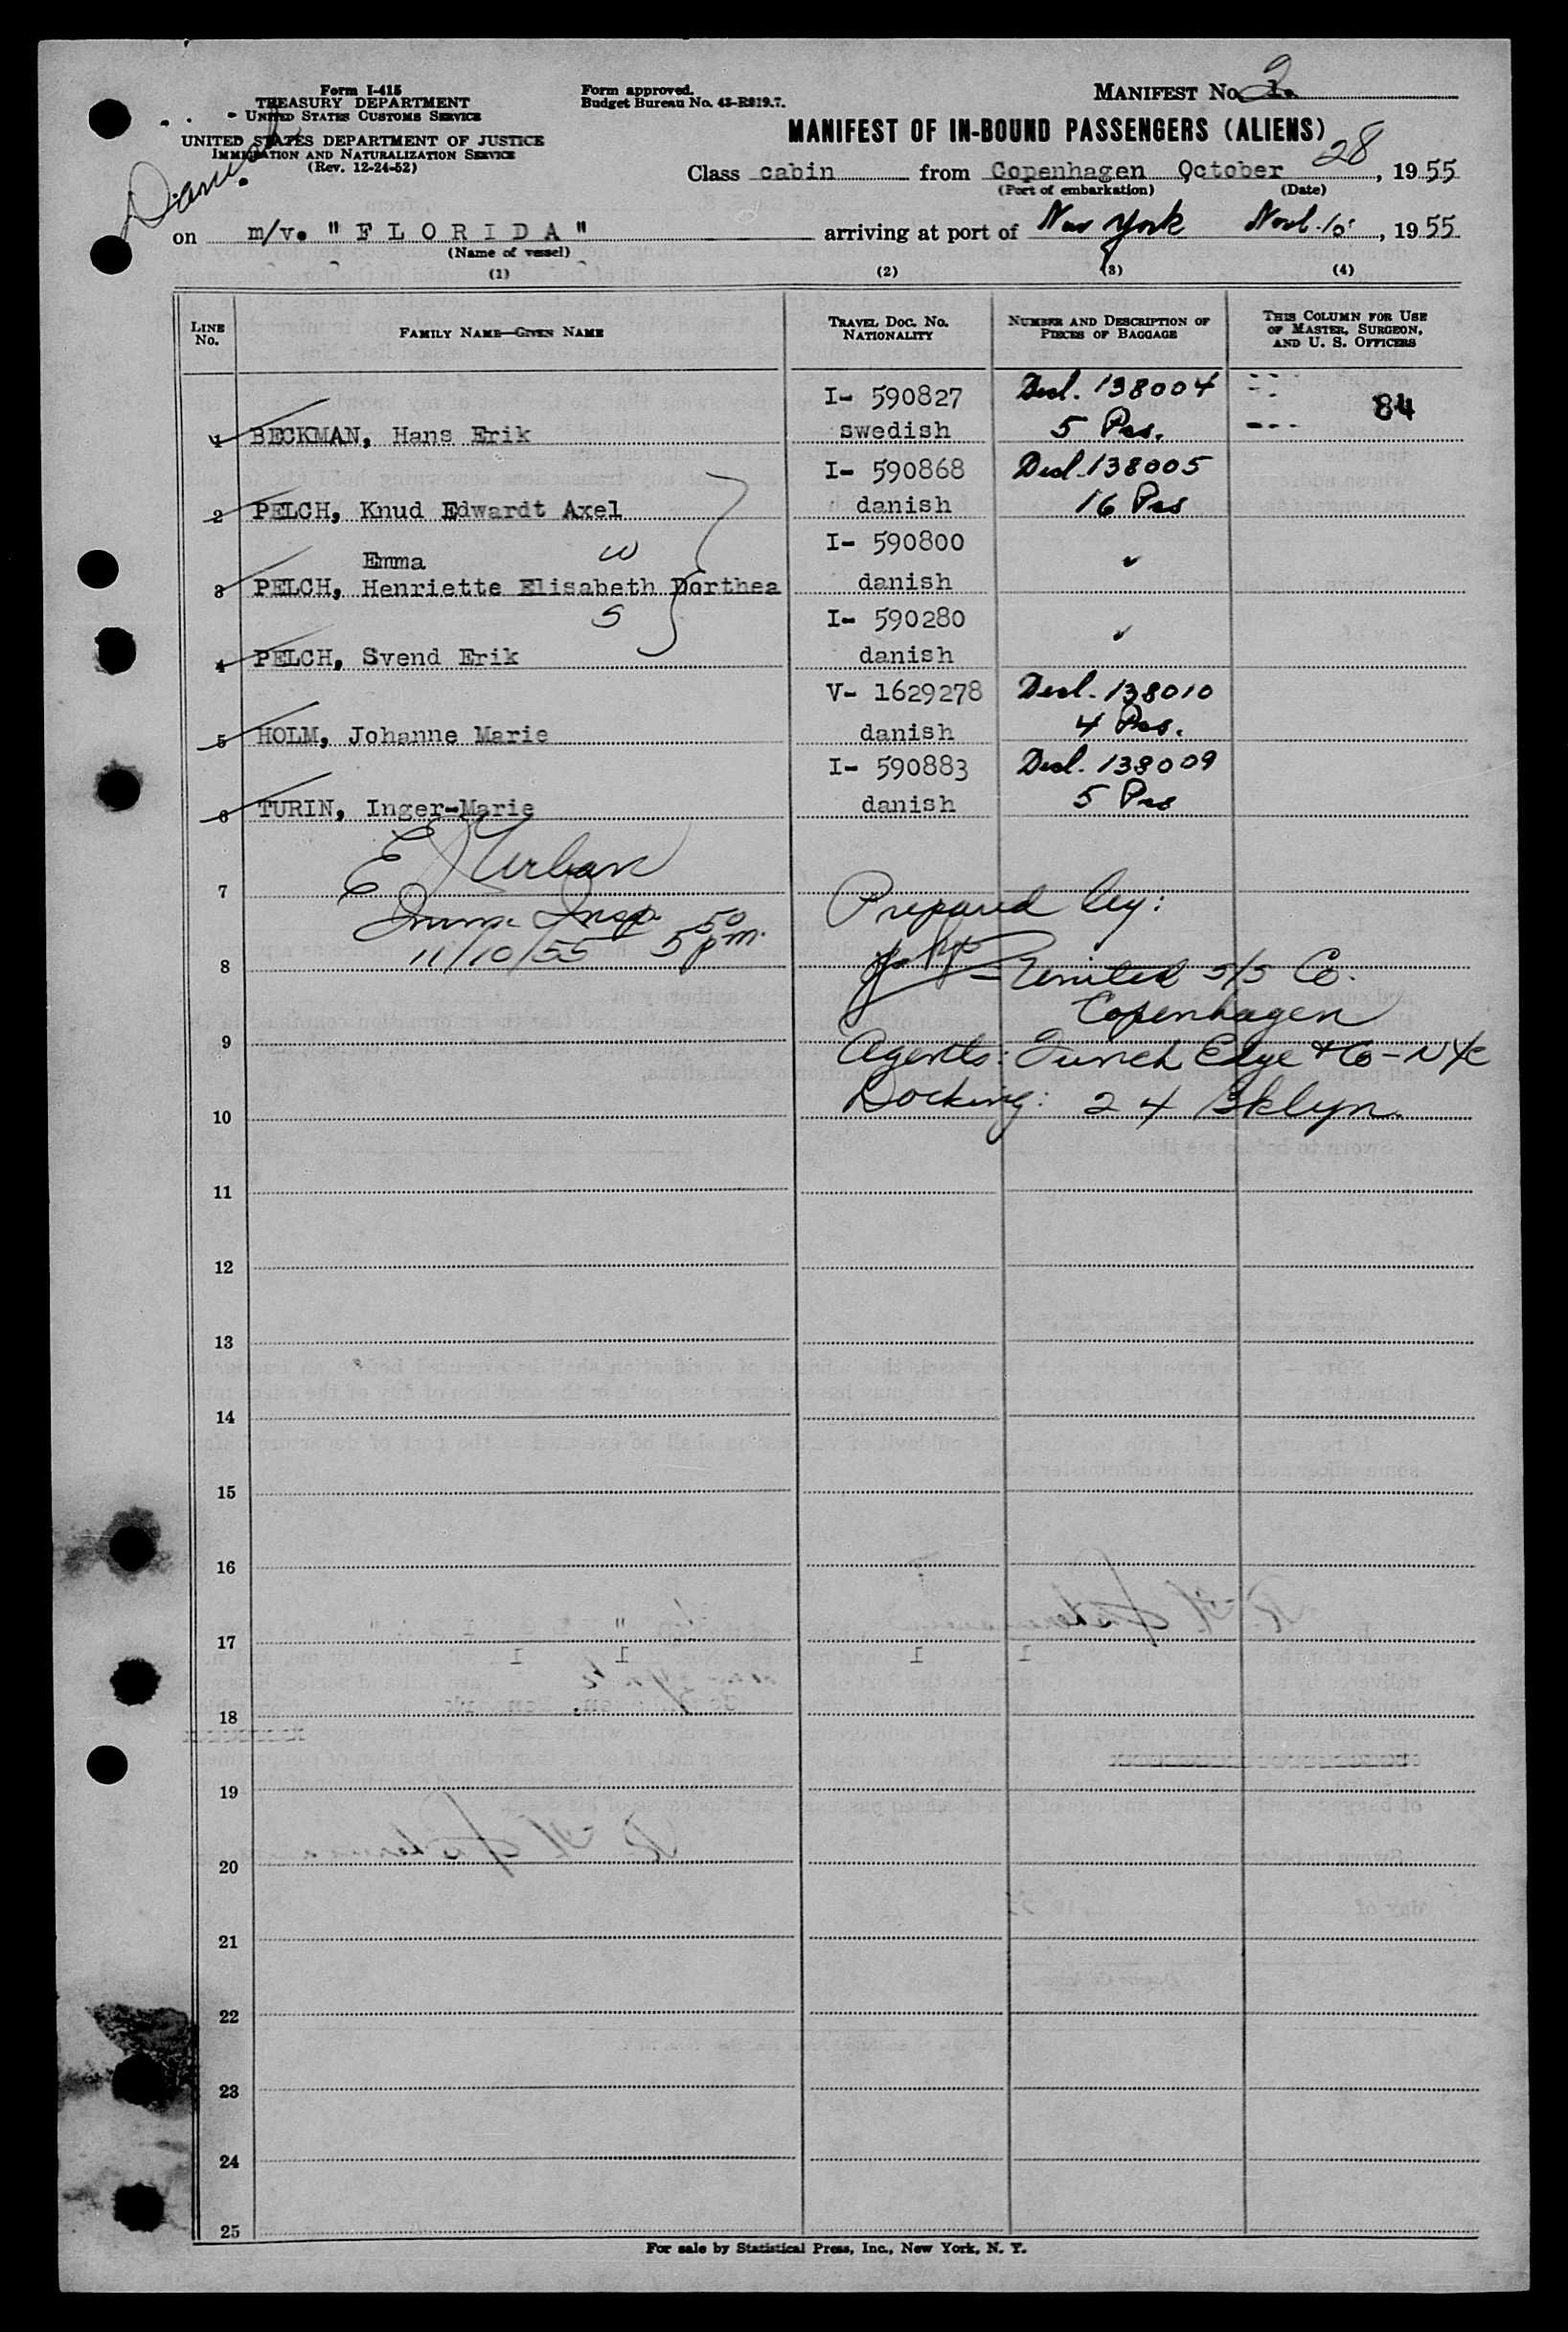 Form I-415
TREASURY DEPARTMENT
UNITED STATES CUSTOMS SERVICE
UNITED STATES DEPARTMENT OF JUSTICE
IMMIGRATION AND NATURALIZATION SERVICE
(Rev. 12-24-52)
Danish
Form approved.
Budget Bureau No. 43-R319.7.
MANIFEST No. 2
MANIFEST OF IN-BOUND PASSENGERS (ALIENS)
Class cabin from Copenhagen October 28, 1955
(Port of embarkation) (Date)
on m/v. " F L O R I D A " arriving at port of New York Novb. 10, 1955
(Name of vessel)
(1) (2) (3) (4)
LINE No. FAMILY NAME—GIVEN NAME TRAVEL DOC. NO. NATIONALITY NUMBER AND DESCRIPTION OF PIECES OF BAGGAGE THIS COLUMN FOR USE OF MASTER, SURGEON, AND U. S. OFFICERS
I- 590827 Decl. 138004 84
1 BECKMAN, Hans Erik swedish 5 Pcs.
I- 590868 Decl. 138005
2 PELCH, Knud Edwardt Axel danish 16 Pcs
Emma W I- 590800 ✓
3 PELCH, Henriette Elisabeth Dorthea danish
S I- 590280 ✓
4 PELCH, Svend Erik danish
V- 1629278 Decl. 138010
5 HOLM, Johanne Marie danish 4 Pcs.
I- 590883 Decl. 138009
6 TURIN, Inger-Marie danish 5 Pcs
E Urban
7
Imm. Insp.
11/10/55 5 50 pm.
Prepared by:
8
United S/S Co.
Copenhagen
9
Agents: Funch Edye & Co - NYC
10
Docking: 24 Bklyn.
11
12
13
14
15
16
17
18
19
20
21
22
23
24
25
For sale by Statistical Press, Inc., New York, N. Y.